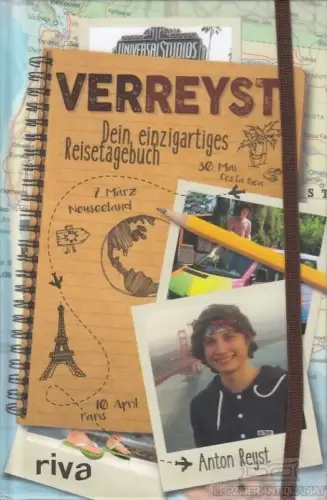 UNIVERSAL STUDIOS
VERREYST
Dein einzigartiges
Reisetagebuch
30. Mai
Costa Rica
7. März
Neuseeland
10. April
Paris
Anton Reyst
riva
LEIPZIGER ANTIQUARIAT